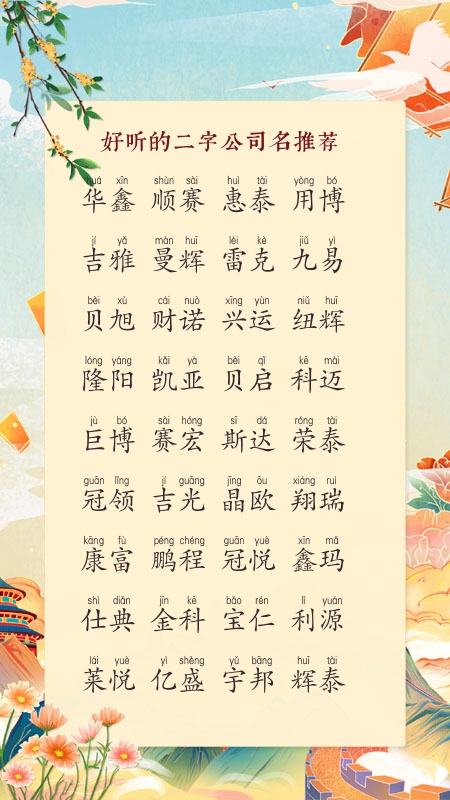 好听的二字公司名推荐
huá xīn shùn sài huì tài yòng bó
华鑫 顺赛 惠泰 用博
jí yǎ màn huī léi kè jiǔ yì
吉雅 曼辉 雷克 九易
bèi xù cái nuò xīng yùn niǔ huī
贝旭 财诺 兴运 纽辉
lóng yáng kǎi yà bèi qǐ kē mài
隆阳 凯亚 贝启 科迈
jù bó sài hóng sī dá róng tài
巨博 赛宏 斯达 荣泰
guān lǐng jí guāng jīng ōu xiáng ruì
冠领 吉光 晶欧 翔瑞
kāng fù péng chéng guān yuè xīn mǎ
康富 鹏程 冠悦 鑫玛
shì diǎn jīn kē bǎo rén lì yuán
仕典 金科 宝仁 利源
lái yuè yì shèng yǔ bāng huī tài
莱悦 亿盛 宇邦 辉泰